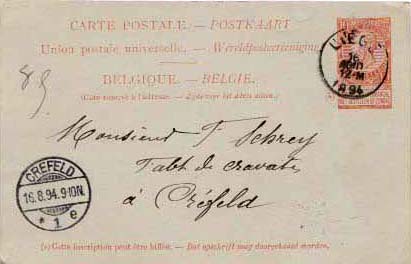 CARTE POSTALE. — POSTKAART
Union postale universelle. — Wereldpostvereeniging.
BELGIQUE. — BELGIE.
(Côté réservé à l'adresse. — Zijde voor het adres alleen.)
LIÈGE
16
AOUT
12-M
1894
89
Monsieur F Schrey
Fabt de cravates
à Créfeld
CREFELD
16.8.94.9-10N.
* 1 e
(*) Cette inscription peut être biffée. — Dat opschrift mag doorgehaald worden.